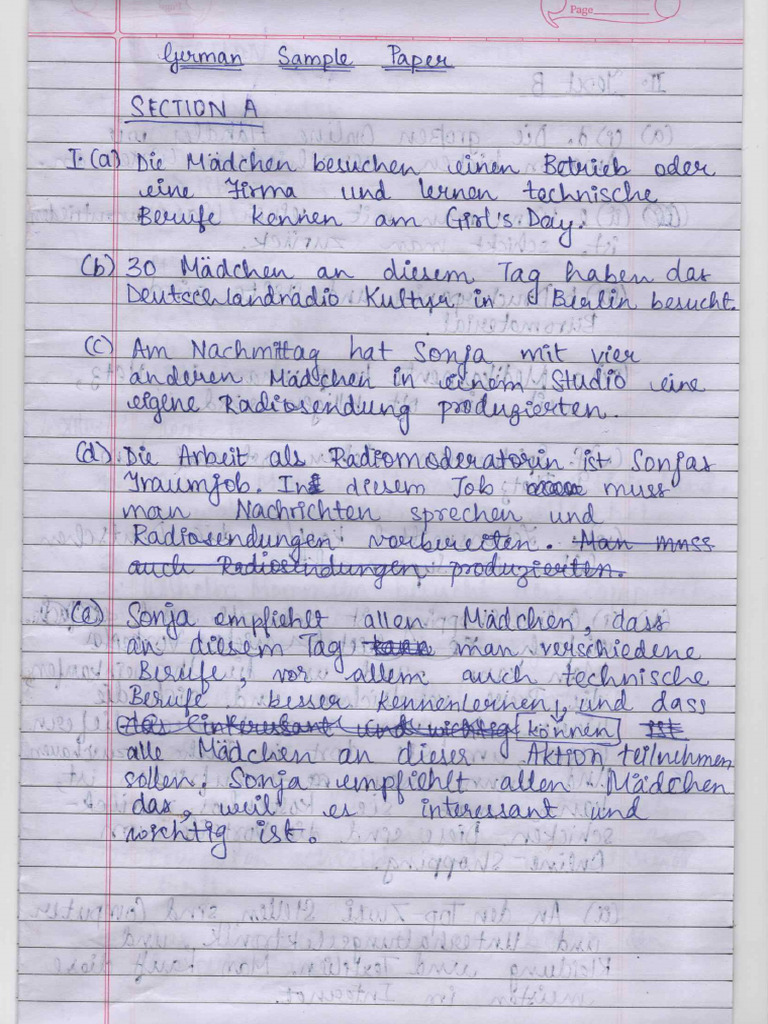 Page
German Sample Paper
SECTION A
I. (a) Die Mädchen besuchen einen Betrieb oder
eine Firma und lernen technische
Berufe kennen am Girl's Day.
(b) 30 Mädchen an diesem Tag haben das
Deutschlandradio Kultur in Berlin besucht.
(c) Am Nachmittag hat Sonja mit vier
anderen Mädchen in einem Studio eine
eigene Radiosendung produzierten.
(d) Die Arbeit als Radiomoderatorin ist Sonjas
Traumjob. In diesem Job muss
man Nachrichten sprechen und
Radiosendungen vorbereiten. Man muss
auch Radiosendungen produzierten.
(e) Sonja empfiehlt allen Mädchen, dass
an diesem Tag man verschiedene
Berufe, vor allem auch technische
Berufe besser kennenlernen, und dass
das interessant und wichtig können ist
alle Mädchen an dieser Aktion teilnehmen
sollen. Sonja empfiehlt allen Mädchen
das, weil es interessant und
wichtig ist.